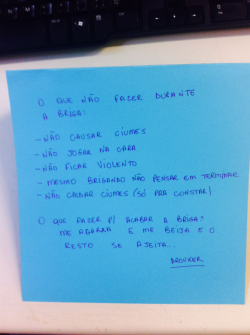 O QUE NÃO FAZER DURANTE
A BRIGA:
- NÃO CAUSAR CIUMES
- NÃO JOGAR NA CARA
- NÃO FICAR VIOLENTO
- MESMO BRIGANDO NÃO PENSAR EM TERMINAR
- NÃO CAUSAR CIUMES (SÓ PRA CONSTAR)
O QUE FAZER P/ ACABAR A BRIGA:
ME AGARRA E ME BEIJA E O
RESTO SE AJEITA...